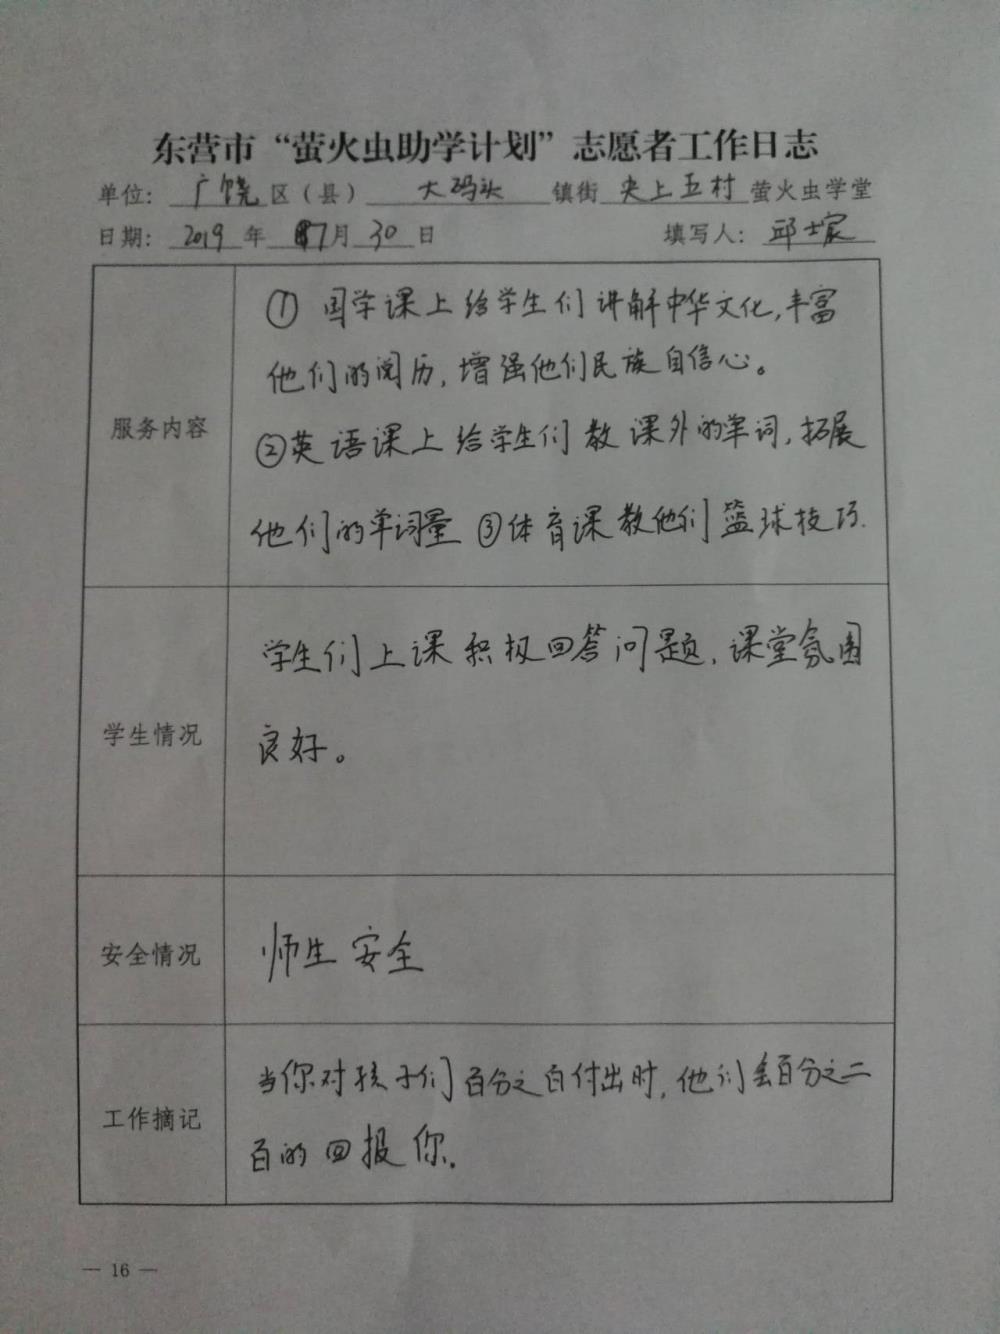 东营市“萤火虫助学计划”志愿者工作日志
单位：广饶区（县）大码头镇街央上五村萤火虫学堂
日期：2019年7月30日 填写人：邱士宸
服务内容
①国学课上给学生们讲解中华文化,丰富
他们的阅历,增强他们民族自信心。
②英语课上给学生们教课外的单词,拓展
他们的单词量 ③体育课教他们篮球技巧.
学生情况
学生们上课积极回答问题,课堂氛围
良好。
安全情况
师生安全
工作摘记
当你对孩子们百分之百付出时,他们会百分之二
百的回报你.
— 16 —